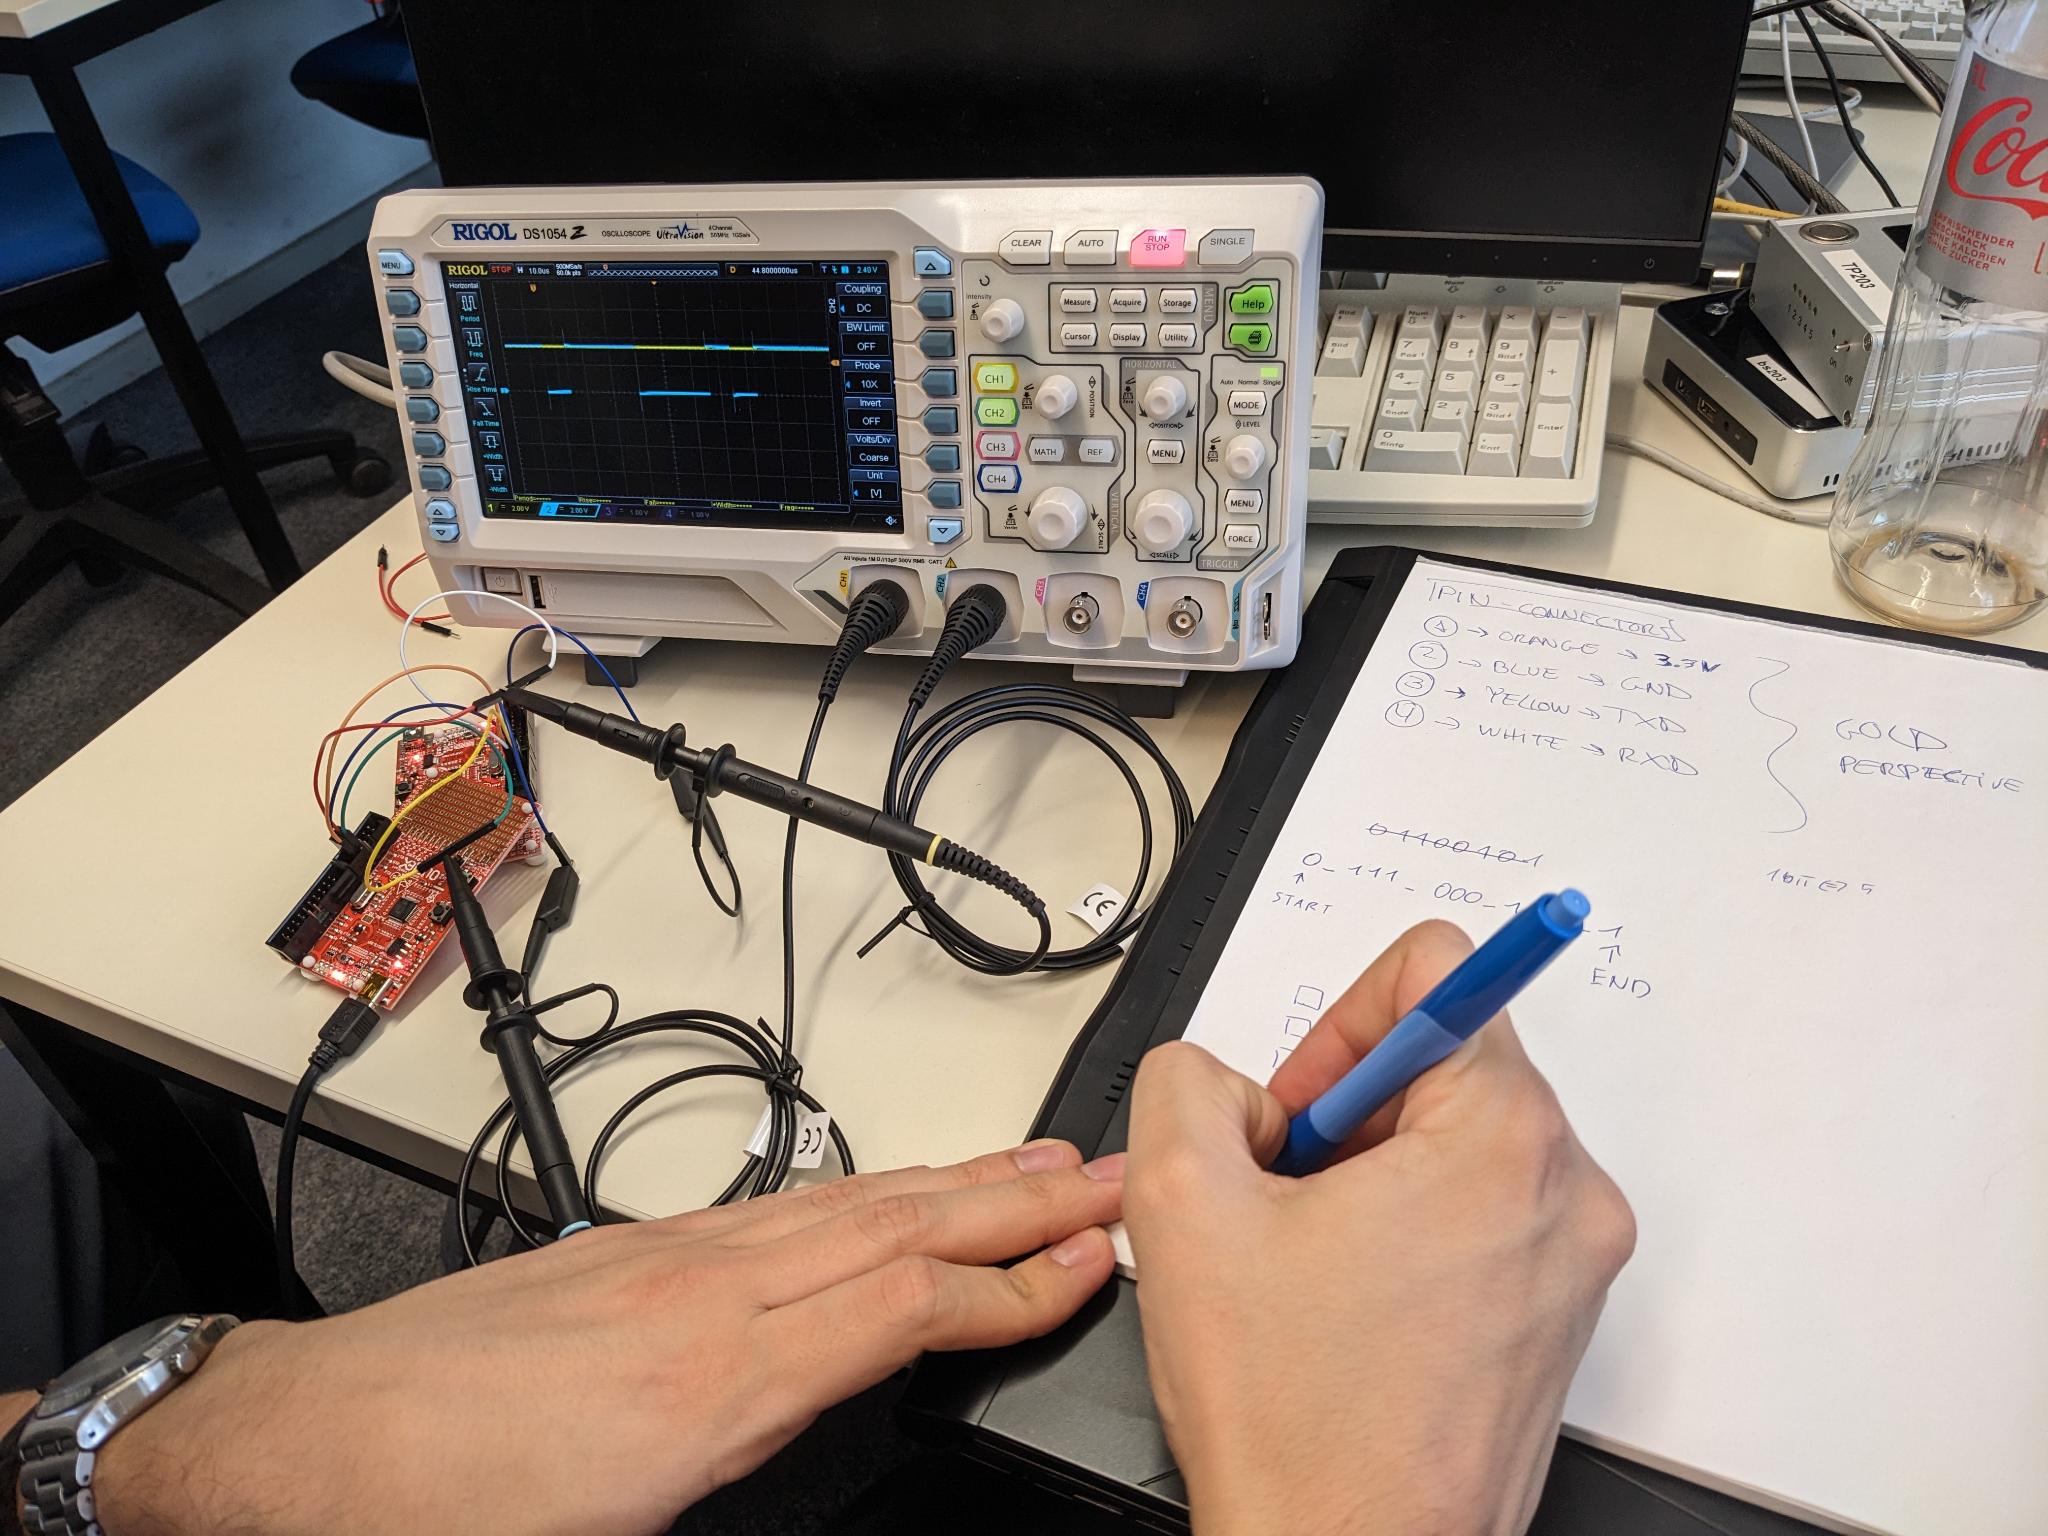 RIGOL DS1054 Z OSCILLOSCOPE UltraVision 4 Channel 50MHz 1GSa/s
MENU
RIGOL STOP H 10.0us 500MSa/s 60.0k pts D 44.8000000us T 2 2.40 V
Horizontal
Period
Freq
Rise Time
Fall Time
+Width
-Width
CH2
Coupling
DC
BW Limit
OFF
Probe
10X
Invert
OFF
Volts/Div
Coarse
Unit
[V]
1 = 2.00 V 2 = 2.00 V 3 = 1.00 V 4 = 1.00 V
CLEAR AUTO RUN STOP SINGLE
Intensity
Measure Acquire Storage
Cursor Display Utility
MENU
Help
CH1
CH2
CH3
CH4
MATH REF
POSITION
VERTICAL
SCALE
HORIZONTAL
POSITION
MENU
SCALE
Auto Normal Single
MODE
LEVEL
MENU
FORCE
TRIGGER
CH1 CH2 CH3 CH4
TP203
1 2 3 4 5
on off
bs203
1L
Coca
ERFRISCHENDER
GESCHMACK
OHNE KALORIEN
OHNE ZUCKER
PIN-CONNECTORS
1 → ORANGE → 3.3V
2 → BLUE → GND
3 → YELLOW → TXD
4 → WHITE → RXD
GOLD
PERSPECTIVE
0 - 111 - 000 - 1
- 1
START
END
CE
CE